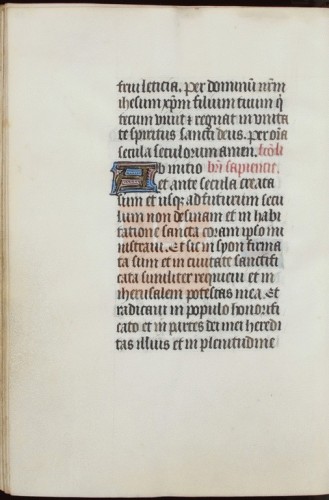 frui leticia. Per dominū nr̄m
ihesum xp̄m filium tuum q̄
tecum viuit ⁊ regnat in vnita
te spiritus sancti deus. per oīa
secula seculorum amen. lc̄o li
Ab initio bri sapientie.
et ante secula creata
sum et usq; ad futurum secu
lum non desinam et in habi
tatione sancta coram ipso mi
nistraui. Et sic in syon firma
ta sum et in ciuitate sanctifi
cata similiter requieui et in
iherusalem potestas mea. Et
radicaui in populo honorifi
cato et in partes dei mei heredi
tas illius et in plenitudine